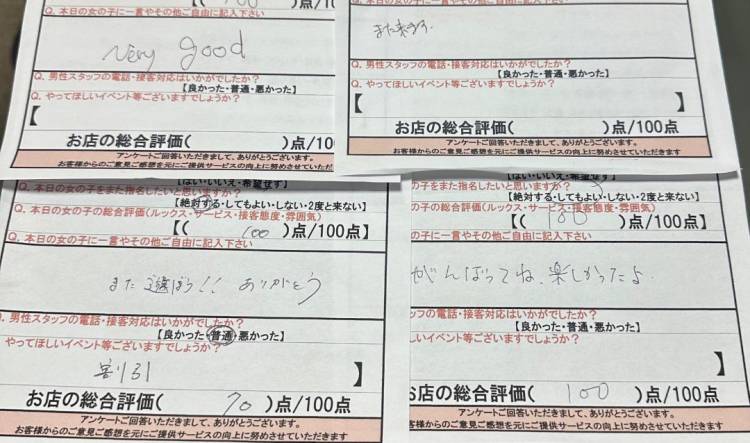 100 )点/10
Q. 本日の女の子に一言やその他ご自由に記入下さい
Very good
Q. 男性スタッフの電話・接客対応はいかがでしたか?
【良かった・普通・悪かった】
Q. やってほしいイベント等ございますでしょうか?
【
お店の総合評価( )点/100
アンケートご回答いただきまして、ありがとうございます。
お客様からのご意見ご感想を元にご提供サービスの向上に努めさせていただきます
Q. 本日の女の子に一言やその他ご自由に記入下さい
また来ます.
Q. 男性スタッフの電話・接客対応はいかがでしたか?
【良かった・普通・悪かった】
Q. やってほしいイベント等ございますでしょうか?
【 】
お店の総合評価( )点/100点
アンケートご回答いただきまして、ありがとうございます。
お客様からのご意見ご感想を元にご提供サービスの向上に努めさせていただきます
【はい・いいえ・希望せず】
Q. 本日の女の子をまた指名したいと思いますか?
【絶対する・してもよい・しない・2度と来ない】
Q. 本日の女の子の総合評価(ルックス・サービス・接客態度・雰囲気)
【( 100 )点/100点】
Q. 本日の女の子に一言やその他ご自由に記入下さい
また遊ぼう!! ありがとう
Q. 男性スタッフの電話・接客対応はいかがでしたか?
【良かった・普通・悪かった】
やってほしいイベント等ございますでしょうか?
割り引 】
お店の総合評価( 70 )点/100点
アンケートご回答いただきまして、ありがとうございます。
お客様からのご意見ご感想を元にご提供サービスの向上に努めさせていただきます
【はい・いいえ・希望せず】
の子をまた指名したいと思いますか?
【絶対する・してもよい・しない・2度と来ない】
の子の総合評価(ルックス・サービス・接客態度・雰囲気)
【( 100 )点/100点】
の子に一言やその他ご自由に記入下さい
がんばってね、楽しかったよ.
タッフの電話・接客対応はいかがでしたか?
【良かった・普通・悪かった】
ほしいイベント等ございますでしょうか?
】
お店の総合評価( 100 )点/100点
アンケートご回答いただきまして、ありがとうございます。
お客様からのご意見ご感想を元にご提供サービスの向上に努めさせていただきます